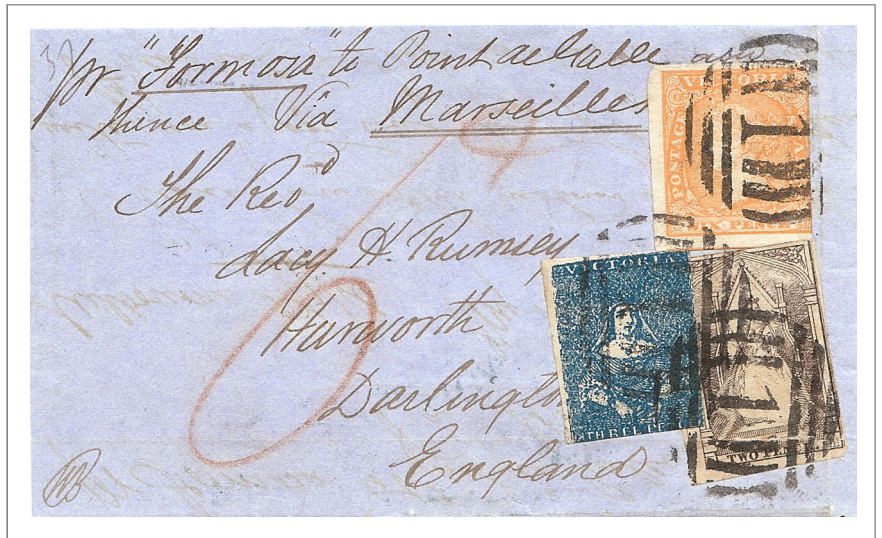 pr "Formosa" to Point de Galle and
thence Via Marseilles
The Revd
Lacy H. Rumsey
Hurworth
Darlington
England
VICTORIA
POSTAGE
SIX PENCE
VICTORIA
THREE PE
TWO PENCE
1
1